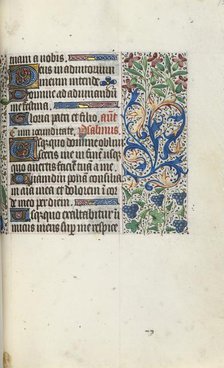 tuam a nobis.
Deus in adiutorium
meum intende
Domine ad adiuuandu
me festina.
Gloria patri et filio, ant
in conuidit. Psalmus.
Usquequo domine obliui
sceris me in fine usque
quo auertis facie tua a me
Quamdiu ponā consilia
in aīa mea et dolorem in cord
e meo per diem.
Usquequo exaltabitur ini
micus meus sup me respic